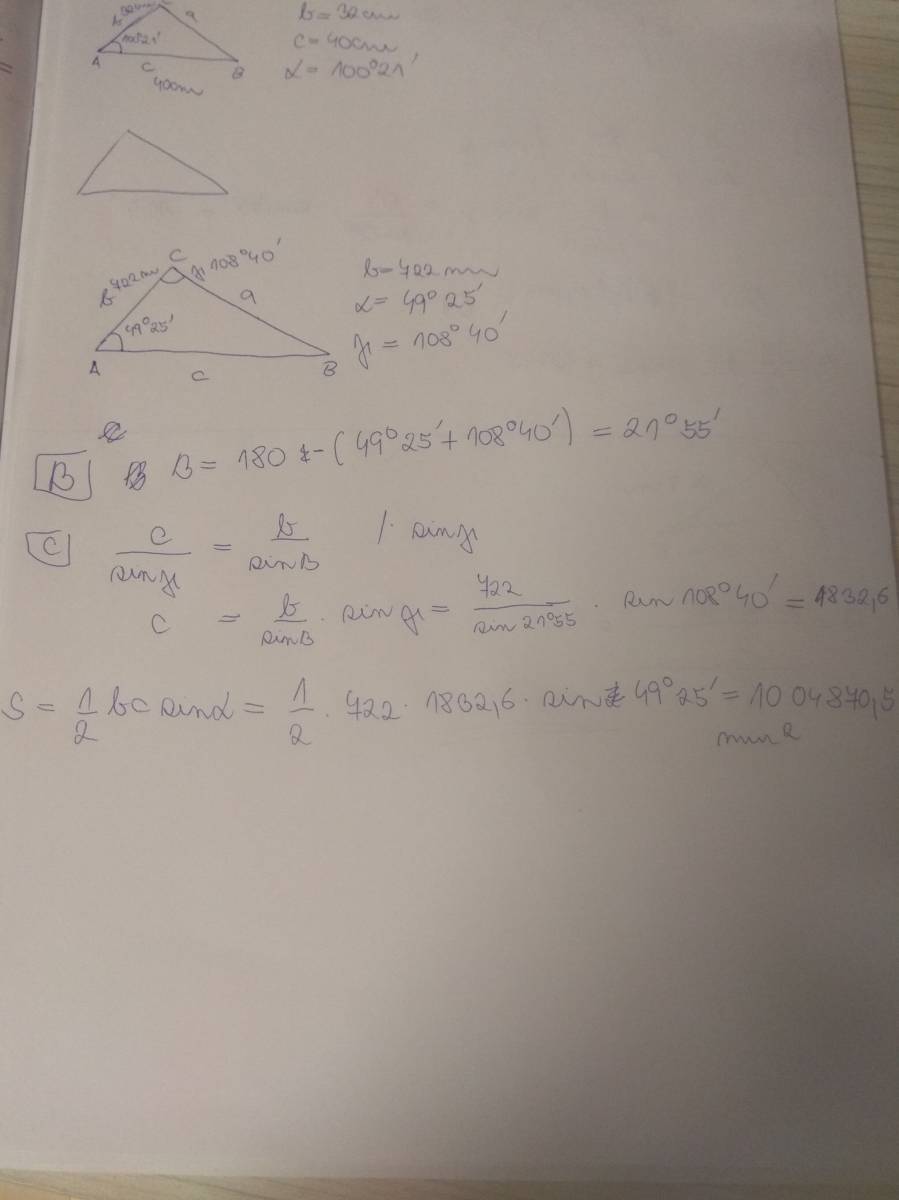 b 32cm C a
100°21'
A c B
40cm
b = 32cm
c = 40cm
α = 100°21'
C
γ 108°40'
b 722mm
a
49°25'
A c B
b = 722 mm
α = 49° 25'
γ = 108° 40'
B B = 180 - ( 49° 25' + 108°40' ) = 21° 55'
C c/sinγ = b/sinB /· sinγ
c = b/sinB · sinγ = 722/sin 21°55 · sin 108°40' = 1832,6
S = 1/2 bc sinα = 1/2 · 722 · 1832,6 · sin 49° 25' = 10 04870,5
mm²